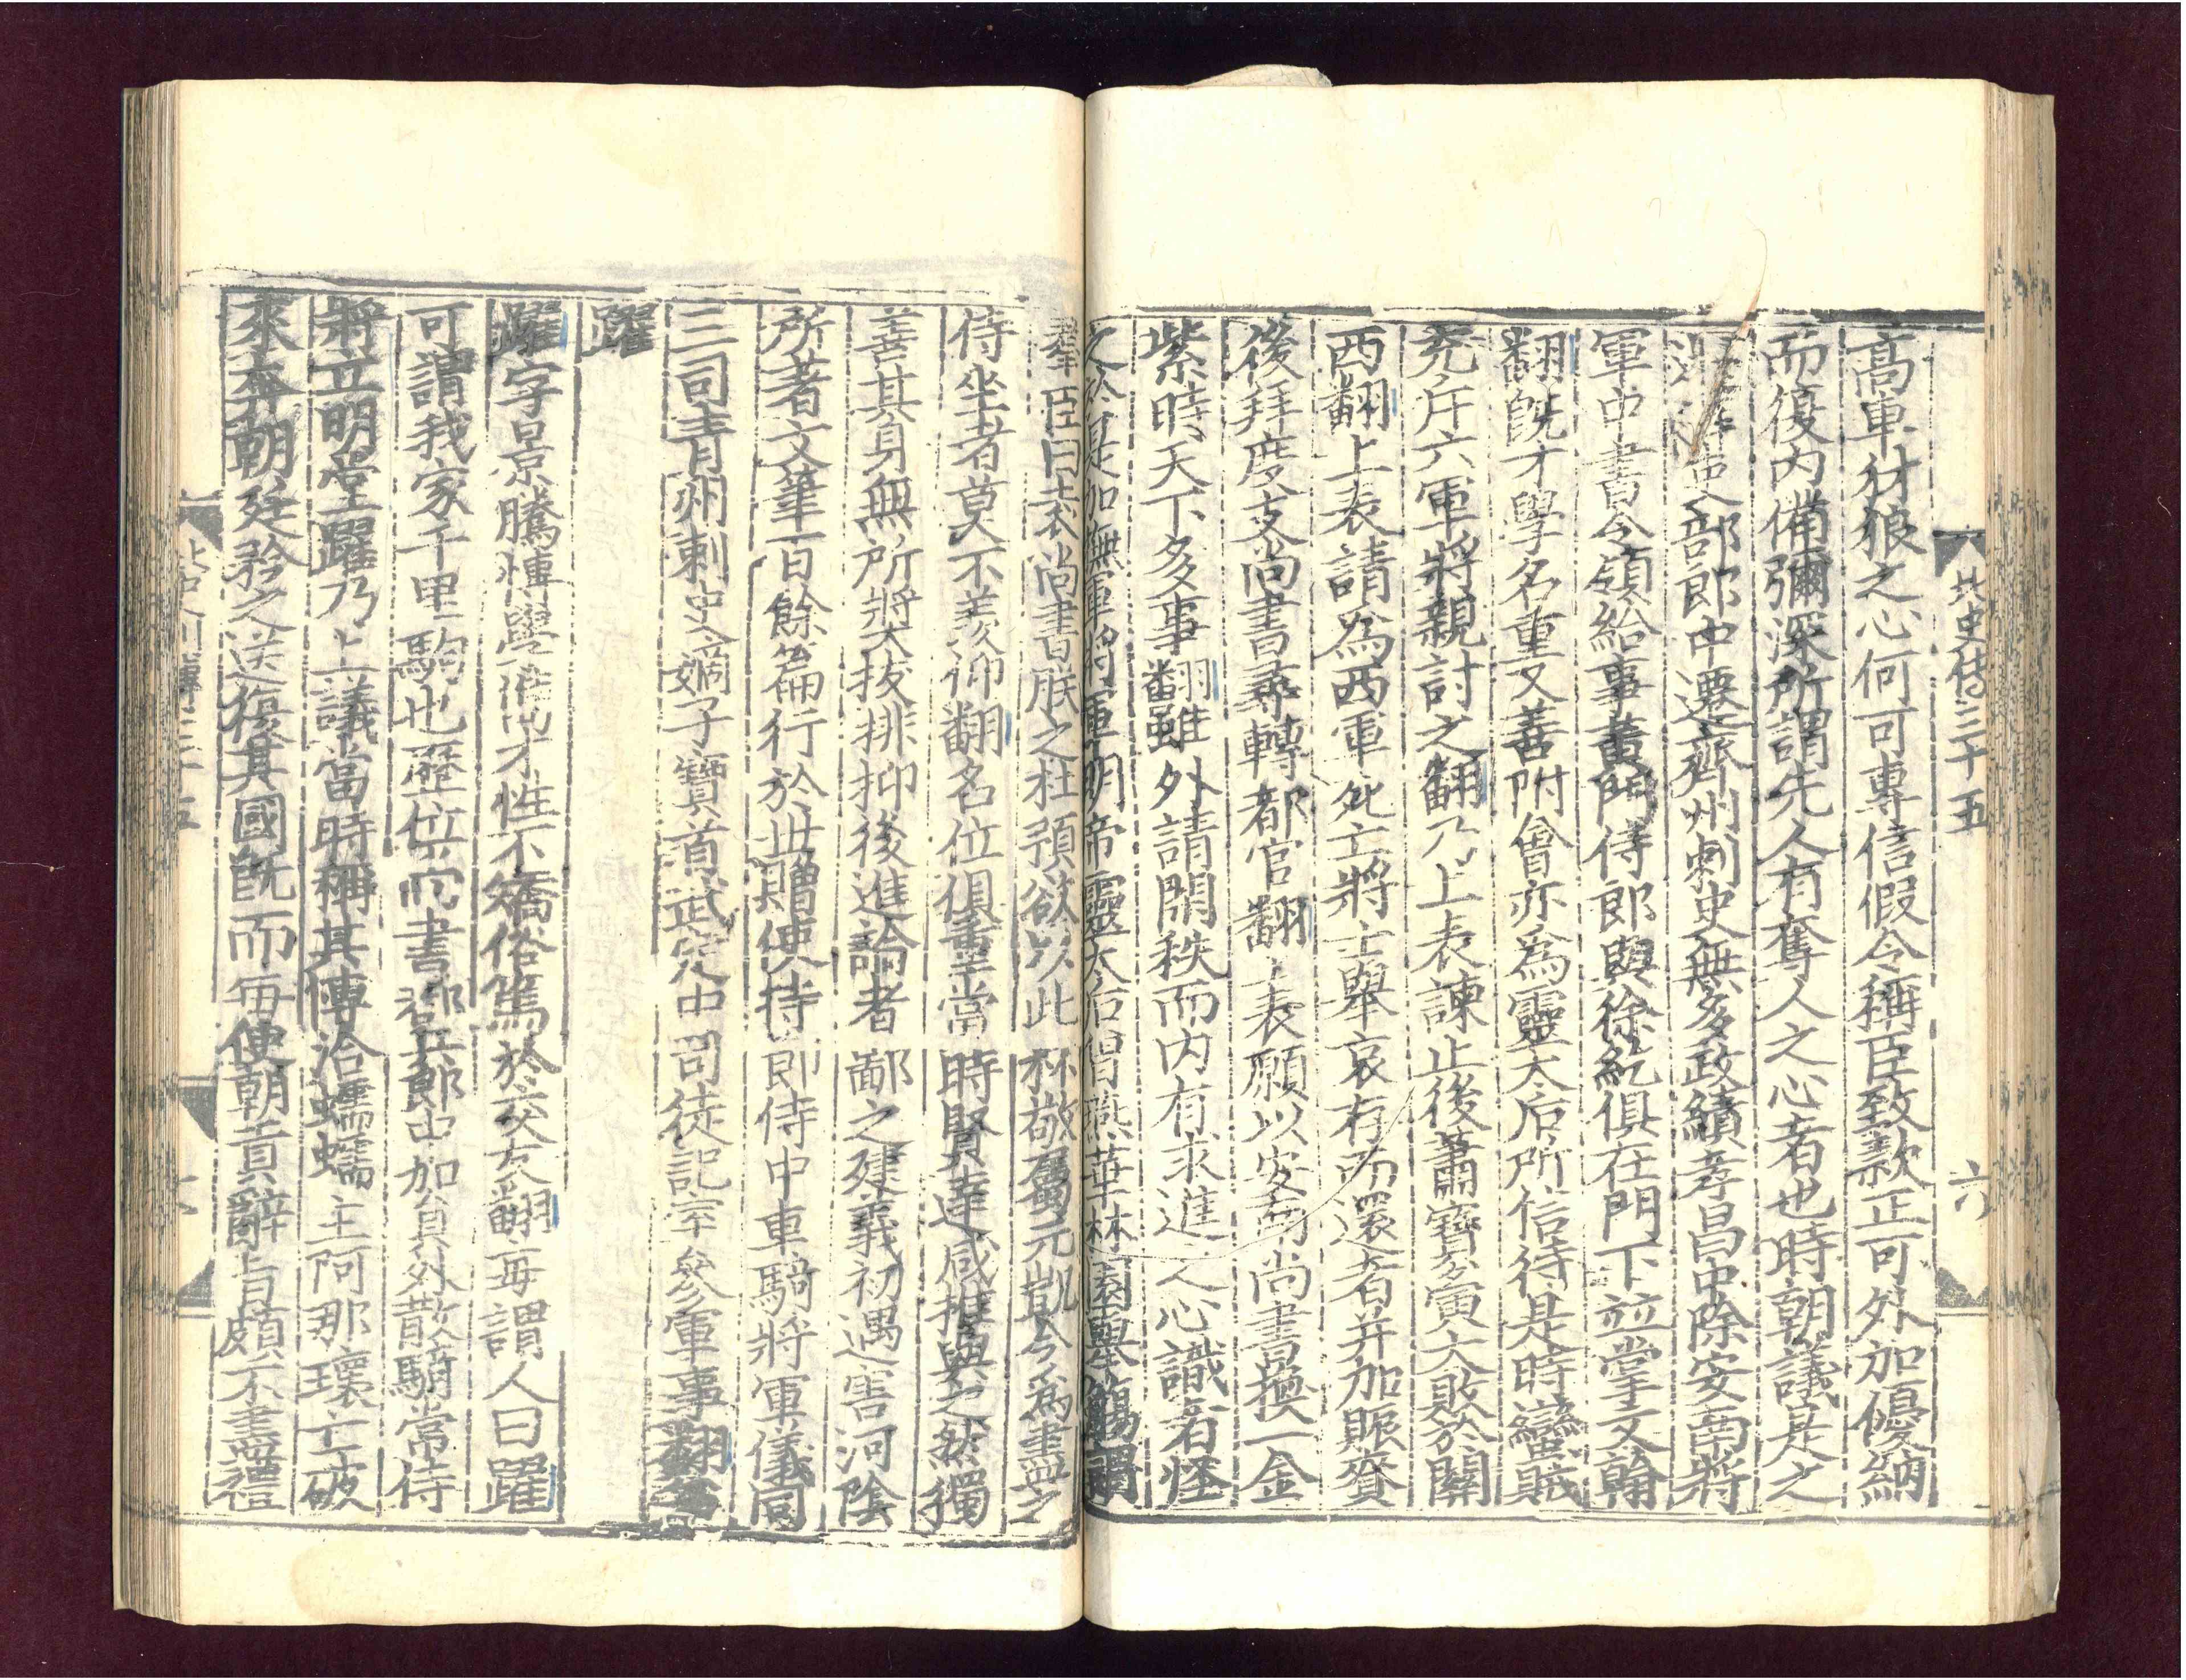 北史傳三十五
六
高車豺狼之心何可專信假令稱臣致款正可外加優納
而復內備彌深所謂先人有奪人之心者也時朝議是之
吏部郎中遷齊州刺史無多政績孝昌中除安南將
軍中書令領給事黃門侍郎與徐紇俱在門下竝掌文翰
翻旣才學名重又善附會亦爲靈太后所信待是時蠻賊
充斥六軍將親討之翻乃上表諫止後蕭寶夤大敗於關
西翻上表請爲西軍死亡將士舉哀存而還者并加賑賚
後拜度支尚書尋轉都官翻上表願以安南尚書換一金
紫時天下多事翻雖外請閑秩而內有求進之心識者怪
之於是加撫軍將軍明帝靈太后甞燕華林園舉觴謂
羣臣曰袁尚書朕之杜預欲以此杯敬屬元凱今爲盡之
侍坐者莫不羨仰翻名位俱重當時賢達咸推與之然獨
善其身無所獎拔排抑後進論者鄙之建義初遇害河陰
所著文筆百餘篇行於世贈使持節侍中車騎將軍儀同
三司青州刺史嫡子寶首武定中司徒記室參軍事翻弟
躍
躍字景騰博學俊才性不矯俗篤於交友翻每謂人曰躍
可謂我家千里駒也歷位尚書都兵郎中加員外散騎常侍
將立明堂躍乃上議當時稱其博洽蠕蠕主阿那瓌亡破
來奔朝廷矜之送復其國旣而每使朝貢辭旨頗不盡禮
北史列傳三十五
六